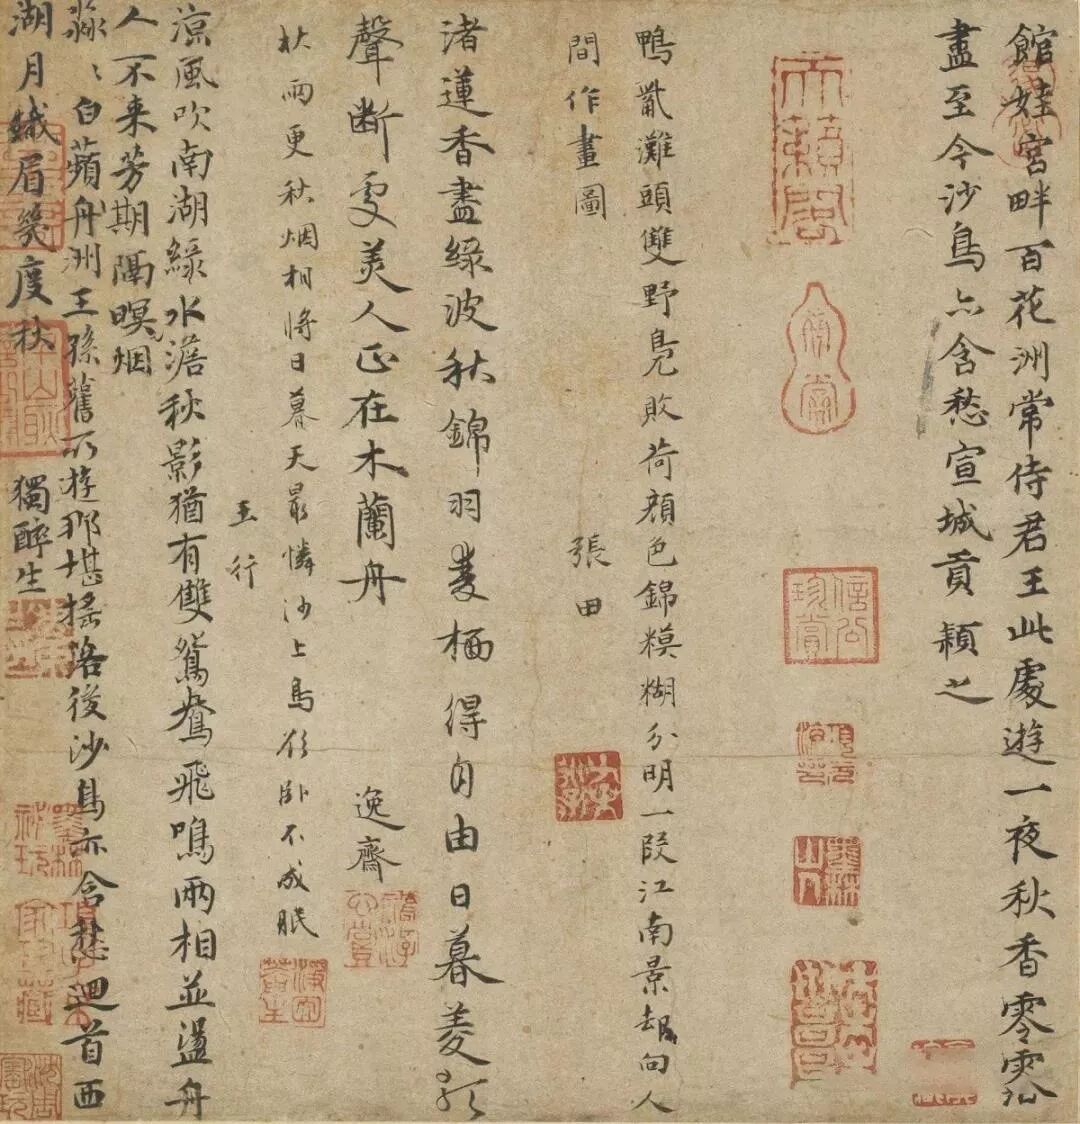 館娃宮畔百花洲常侍君王此處遊一夜秋香零露
盡至今沙鳥亦含愁宣城貢穎之
天籟閣
鴨嘴灘頭雙野鳧敗荷顏色錦糢糊分明一段江南景却向人
間作畫圖
張田
渚蓮香盡綠波秋錦羽雙栖得自由日暮菱歌
聲斷處美人正在木蘭舟
逸齋
秋雨更秋烟相將日暮天最憐沙上鳥欲卧不成眠
王行
涼風吹南湖綠水澹秋影猶有雙鴛鴦飛鳴兩相並盪舟
人不来芳期隔暝烟
淼〻白蘋舟洲王孫舊所遊那堪搖落後沙鳥亦含愁迴首西
湖月纖眉幾度秋
獨醉生